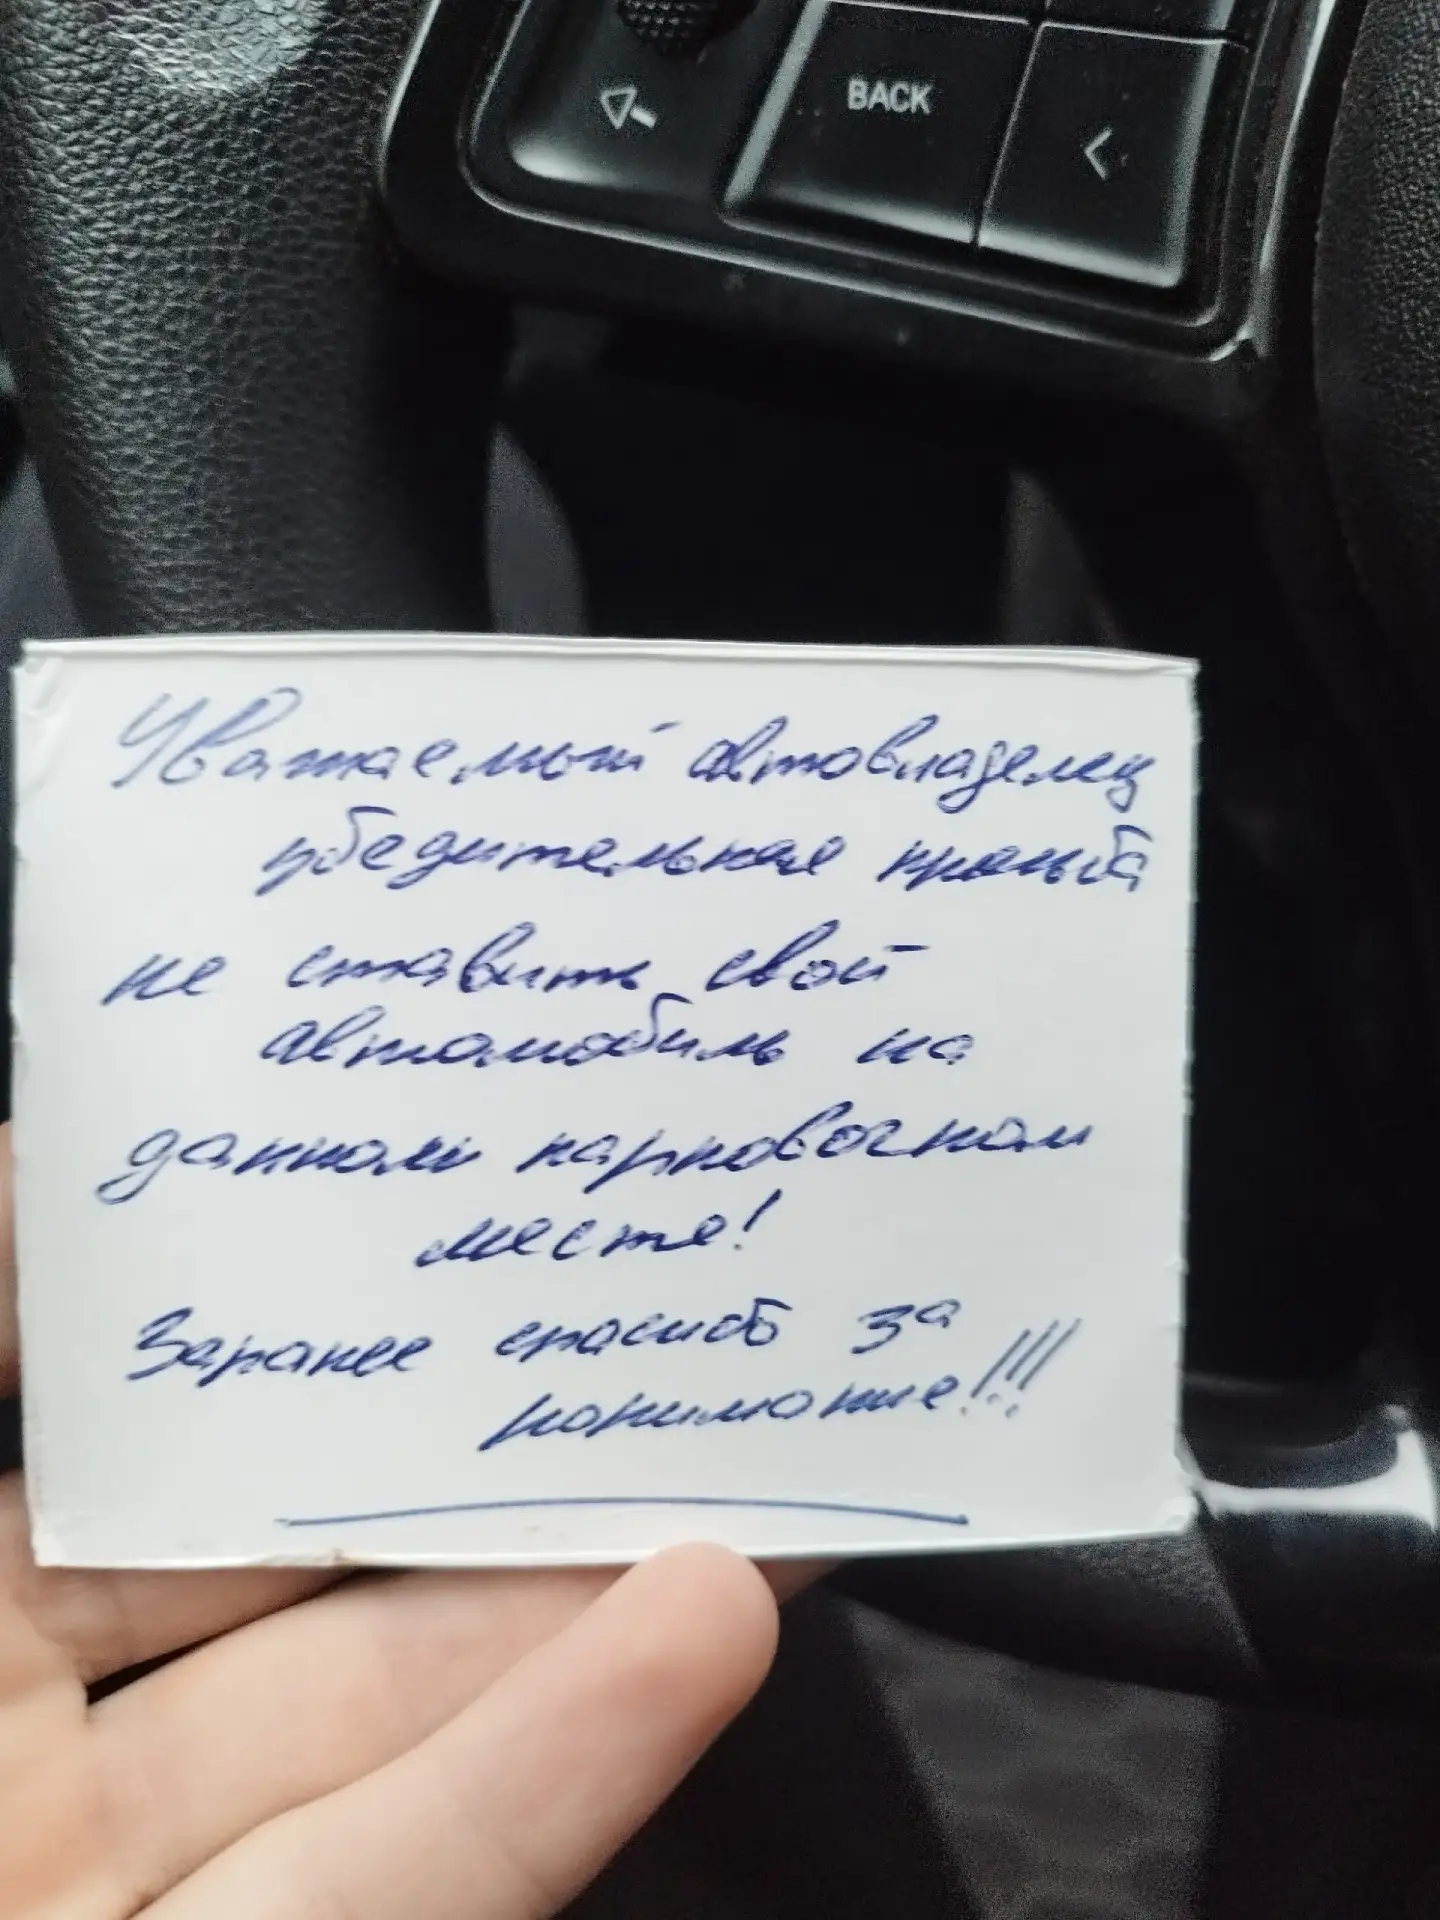 BACK
<
Уважаемый автовладелец
убедительная просьба
не ставить свой
автомобиль на
данном парковочном
месте!
Заранее спасибо за
понимание!!!